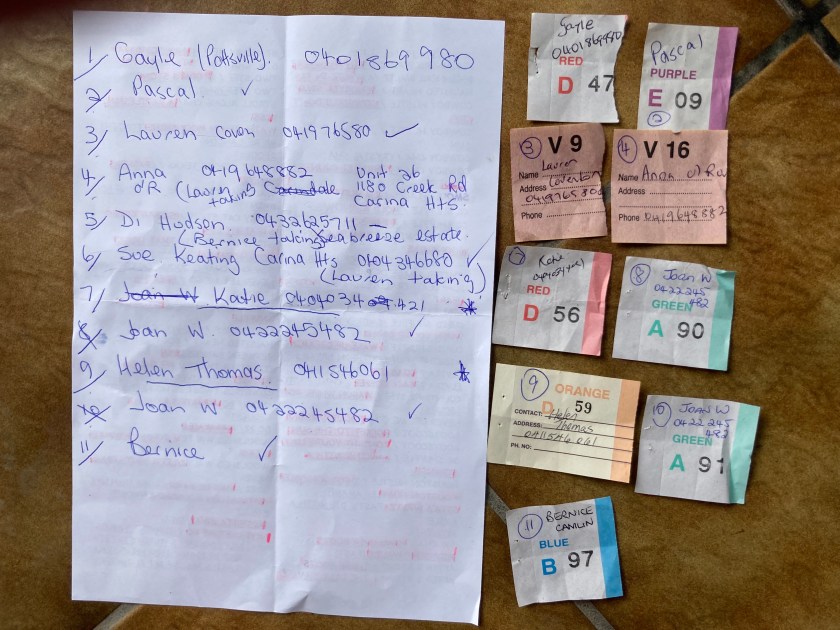 1/ Gayle (Pottsville). 0401869980
2/ Pascal ✓
3/ Lauren Coven 041976580 ✓
4/ Anna 0419648882 Unit 26
O'R (Lauren taking 1180 Creek Rd
Carina Hts.
5/ Di Hudson 0432625711 –
(Bernice taking seabreeze estate.
6/ Sue Keating Carina Hts 0404346680 ✓
(Lauren taking)
7/ Joan W Katie 0404034 421 *
8/ Joan W. 0422245482 ✓
9/ Helen Thomas 041546061 *
Joan W 0422245482 ✓
11/ Bernice ✓
Gayle
0401869980
RED
D 47
Pascal
PURPLE
E 09
2
3 V 9
Name Lauren
Address
Phone
4 V 16
Name Anna
Address
Phone 0419648882
7 Katie
RED
D 56
8 Joan W
0422245
482
GREEN
A 90
9 ORANGE
D 59
CONTACT: Helen
ADDRESS: Thomas
041546061
PH. NO:
10 JOAN W
0422 245
482
GREEN
A 91
11 BERNICE
CAMLIN
BLUE
B 97